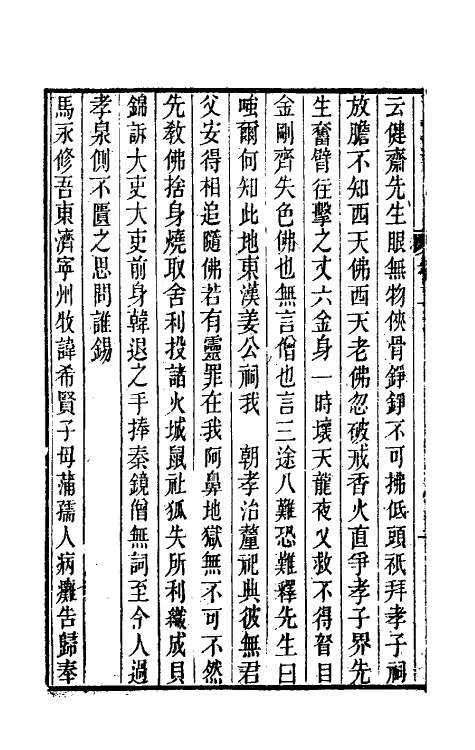 云健齋先生眼無物俠骨錚錚不可拂低頭祇拜孝子祠
放膽不知西天佛西天老佛忽破戒香火直爭孝子界先
生奮臂往擊之丈六金身一時壞天龍夜乂救不得晵目
金剛齊失色佛也無言僧也言三途八難恐難釋先生曰
嗤爾何知此地東漢姜公祠我 朝孝治釐祀典彼無君
父安得相追隨佛若有靈罪在我阿鼻地獄無不可不然
先教佛捨身燒取舍利投諸火城鼠社狐失所利織成貝
錦訴大吏大吏前身韓退之手捧秦鏡僧無詞至今人過
孝泉側不匱之思問誰錫
馬永修吾東濟寧州牧諱希賢子母蒲孺人病癱告歸奉